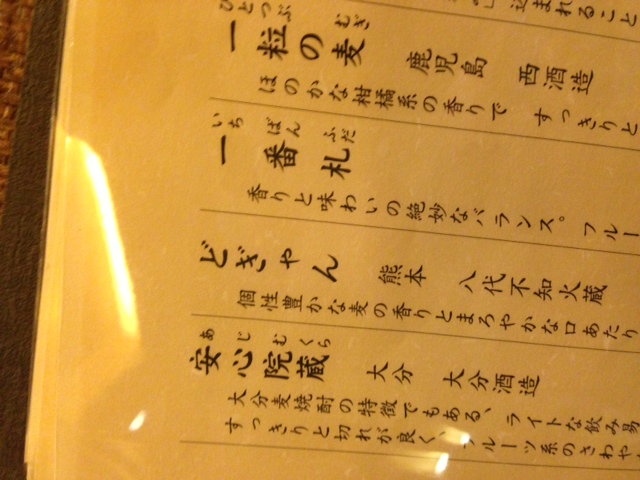 ひとつぶ むぎ
一粒の麦 鹿児島 西酒造
ほのかな柑橘系の香りで すっきりと
いち ばん ふだ
一番札
香りと味わいの絶妙なバランス。 フルー
どぎゃん 熊本 八代不知火蔵
個性豊かな麦の香りとまろやかな口あたり
あ じ む くら
安心院蔵 大分 大分酒造
大分麦焼酎の特徴でもある、ライトな飲み易
すっきりと切れが良く、フルーツ系のさわや